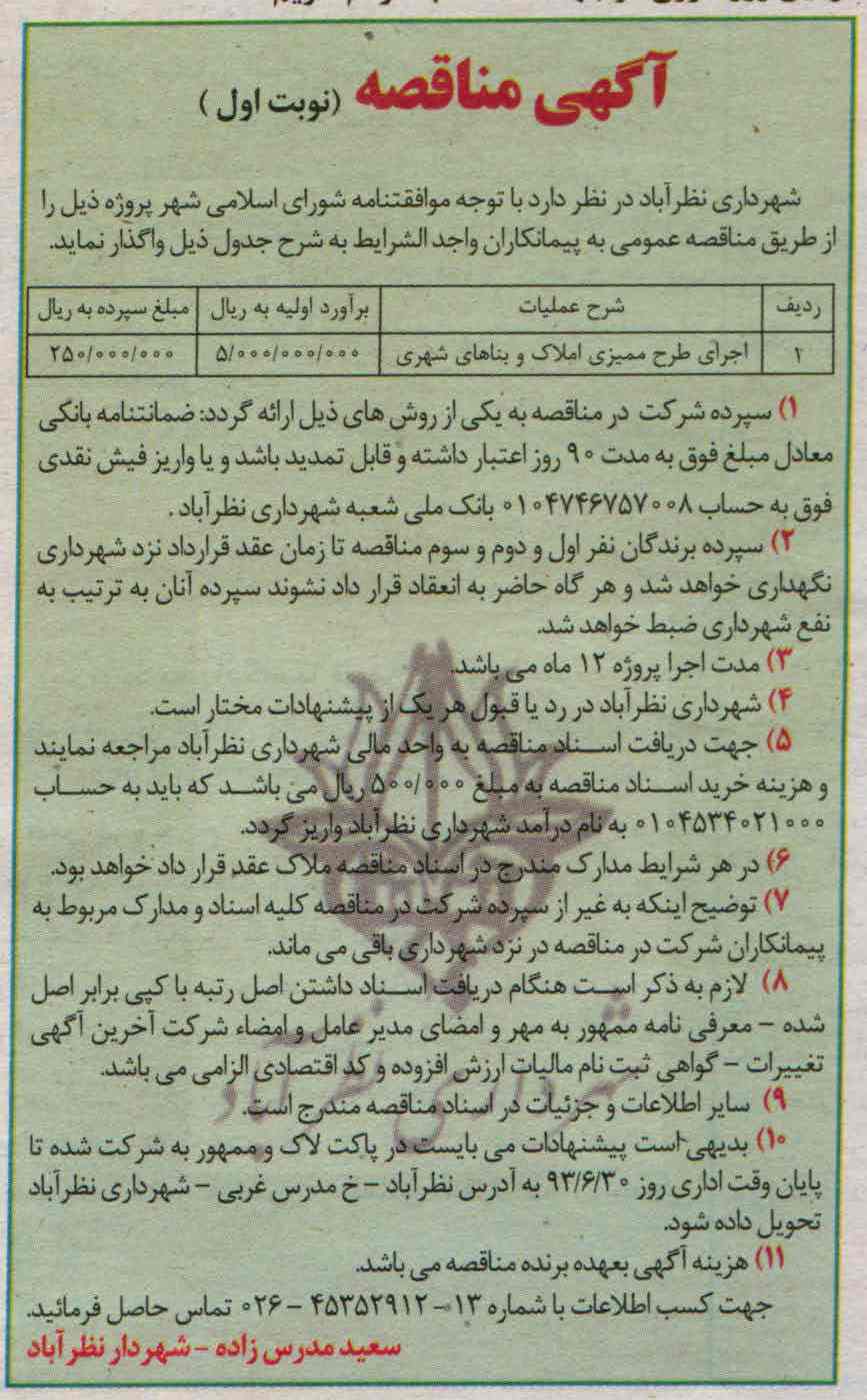 آگهی مناقصه (نوبت اول)
شهرداری نظرآباد در نظر دارد با توجه موافقتنامه شورای اسلامی شهر پروژه ذیل را
از طریق مناقصه عمومی به پیمانکاران واجد الشرایط به شرح جدول ذیل واگذار نماید.
ردیف شرح عملیات برآورد اولیه به ریال مبلغ سپرده به ریال
۱ اجرای طرح ممیزی املاک و بناهای شهری ۵/۰۰۰/۰۰۰/۰۰۰ ۲۵۰/۰۰۰/۰۰۰
۱) سپرده شرکت در مناقصه به یکی از روش های ذیل ارائه گردد: ضمانتنامه بانکی
معادل مبلغ فوق به مدت ۹۰ روز اعتبار داشته و قابل تمدید باشد و یا واریز فیش نقدی
فوق به حساب ۰۱۰۴۷۴۶۷۵۷۰۰۸ بانک ملی شعبه شهرداری نظرآباد .
۲) سپرده برندگان نفر اول و دوم و سوم مناقصه تا زمان عقد قرارداد نزد شهرداری
نگهداری خواهد شد و هر گاه حاضر به انعقاد قرار داد نشوند سپرده آنان به ترتیب به
نفع شهرداری ضبط خواهد شد.
۳) مدت اجرا پروژه ۱۲ ماه می باشد.
۴) شهرداری نظرآباد در رد یا قبول هر یک از پیشنهادات مختار است.
۵) جهت دریافت اسناد مناقصه به واحد مالی شهرداری نظرآباد مراجعه نمایند
و هزینه خرید اسناد مناقصه به مبلغ ۵۰۰/۰۰۰ ریال می باشد که باید به حساب
۰۱۰۴۵۳۴۰۲۱۰۰۰ به نام درآمد شهرداری نظرآباد واریز گردد.
۶) در هر شرایط مدارک مندرج در اسناد مناقصه ملاک عقد قرار داد خواهد بود.
۷) توضیح اینکه به غیر از سپرده شرکت در مناقصه کلیه اسناد و مدارک مربوط به
پیمانکاران شرکت در مناقصه در نزد شهرداری باقی می ماند.
۸) لازم به ذکر است هنگام دریافت اسناد داشتن اصل رتبه با کپی برابر اصل
شده – معرفی نامه ممهور به مهر و امضای مدیر عامل و امضاء شرکت آخرین آگهی
تغییرات – گواهی ثبت نام مالیات ارزش افزوده و کد اقتصادی الزامی می باشد.
۹) سایر اطلاعات و جزئیات در اسناد مناقصه مندرج است.
۱۰) بدیهی است پیشنهادات می بایست در پاکت لاک و ممهور به شرکت شده تا
پایان وقت اداری روز ۹۳/۶/۳۰ به آدرس نظرآباد – خ مدرس غربی – شهرداری نظرآباد
تحویل داده شود.
۱۱) هزینه آگهی بعهده برنده مناقصه می باشد.
جهت کسب اطلاعات با شماره ۱۳–۴۵۳۵۲۹۱۲ –۰۲۶ تماس حاصل فرمائید.
سعید مدرس زاده – شهردار نظرآباد
شهرداری نظرآباد